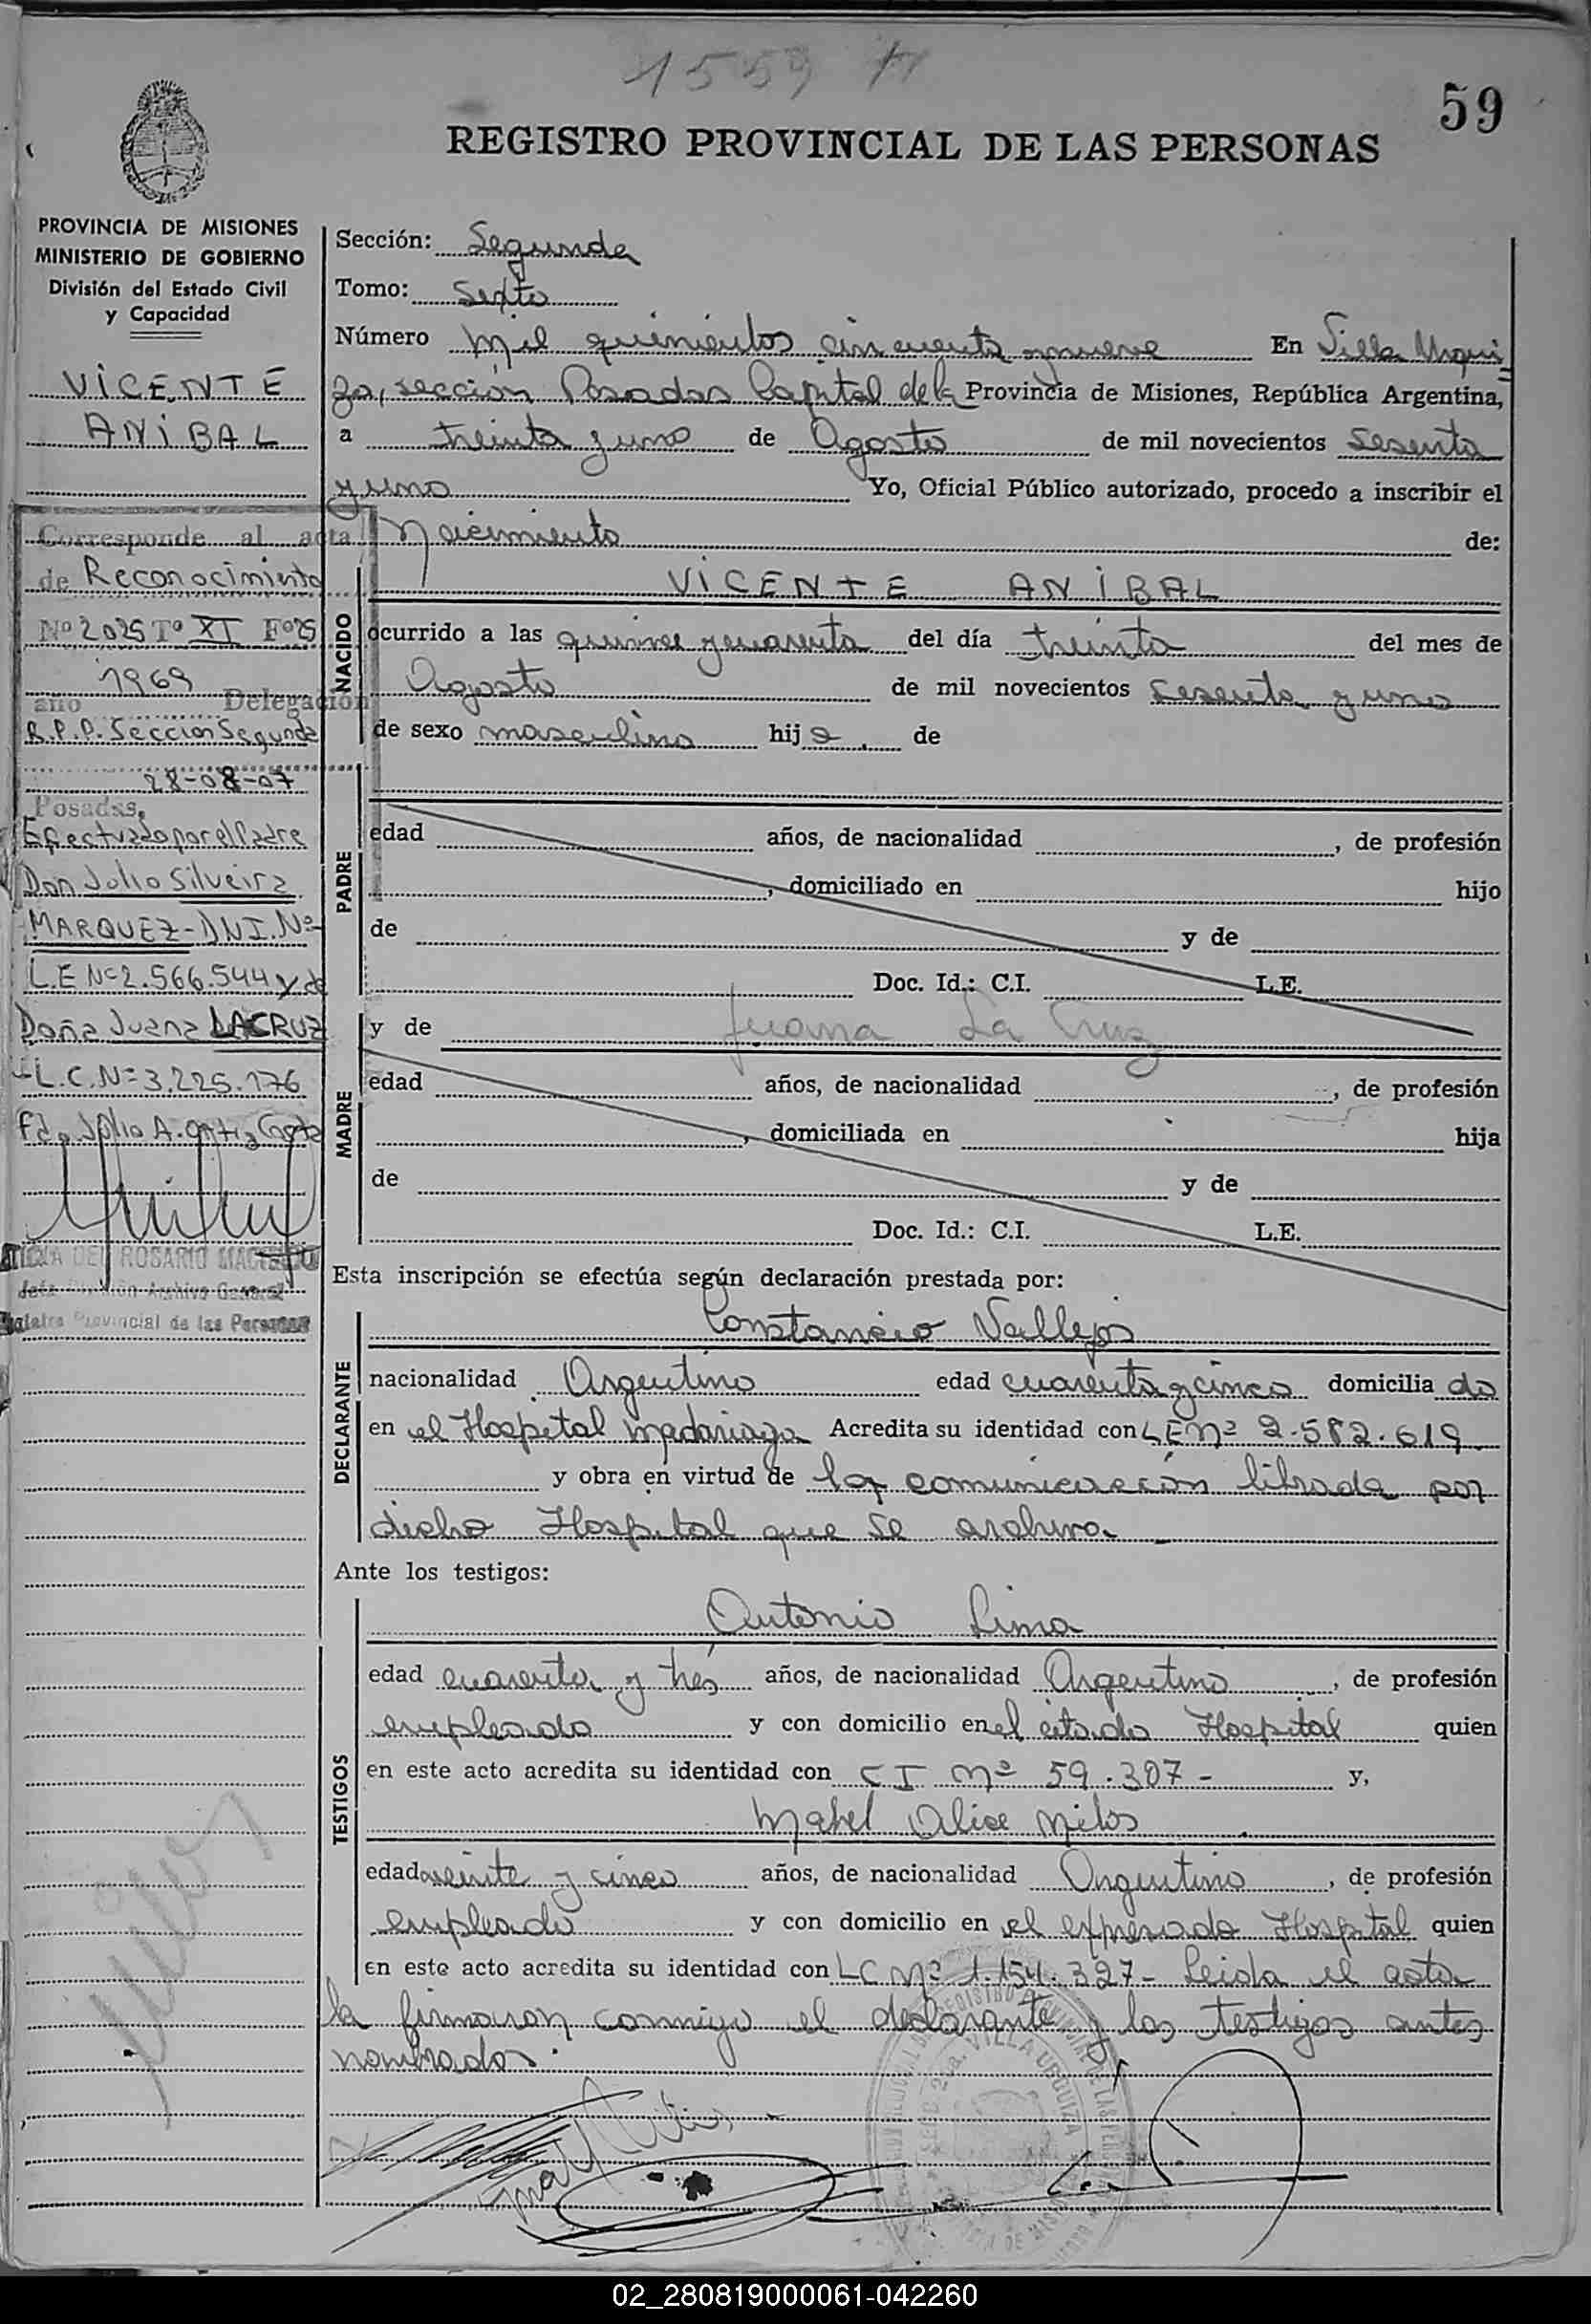 1559
59
REGISTRO PROVINCIAL DE LAS PERSONAS
PROVINCIA DE MISIONES
MINISTERIO DE GOBIERNO
División del Estado Civil
y Capacidad
VICENTE
ANIBAL
Corresponde al acta
de Reconocimiento
Nº 2025 Tº XI Fº 25
1969
año Delegación
R.P.P. Sección Segunda
28-08-07
Posadas,
Efectuado por el Padre
Don Julio Silveira
MARQUEZ - DNI. Nº
L.E Nº 2.566.544 y de
Doña Juana LACRUZ
L.C. Nº 3.225.176
Fdo. Julio A. Ortiz
DEL ROSARIO
Jefe División Archivo General
Provincial de las Personas
Sección: Segunda
Tomo: Sexto
Número mil quinientos cincuenta y nueve En Villa Urqui
za, sección Posadas Capital de la Provincia de Misiones, República Argentina,
a treinta y uno de Agosto de mil novecientos sesenta
y uno Yo, Oficial Público autorizado, procedo a inscribir el
Nacimiento de:
NACIDO
VICENTE ANIBAL
ocurrido a las quince y cuarenta del día treinta del mes de
Agosto de mil novecientos sesenta y uno
de sexo masculino hij o. de
PADRE
edad años, de nacionalidad , de profesión
, domiciliado en hijo
de y de
Doc. Id.: C.I. L.E.
y de Juana La Cruz
MADRE
edad años, de nacionalidad , de profesión
, domiciliada en hija
de y de
Doc. Id.: C.I. L.E.
Esta inscripción se efectúa según declaración prestada por:
DECLARANTE
Constancio Vallejos
nacionalidad Argentino edad cuarenta y cinco domicilia do
en el Hospital Madariaga Acredita su identidad con LE Nº 2.582.619
y obra en virtud de la comunicación librada por
dicho Hospital que se archiva.
Ante los testigos:
TESTIGOS
Antonio Lima
edad cuarenta y tres años, de nacionalidad Argentino , de profesión
empleado y con domicilio en el citado Hospital quien
en este acto acredita su identidad con CI Nº 59.307 - y,
Mabel Alice Milos
edad veinte y cinco años, de nacionalidad Argentino , de profesión
empleado y con domicilio en el expresado Hospital quien
en este acto acredita su identidad con LC Nº 1.154.327 - Leida el acta
la firmaron conmigo el declarante y los testigos antes
nombrados.
VILLA URQUIZA
02_280819000061-042260